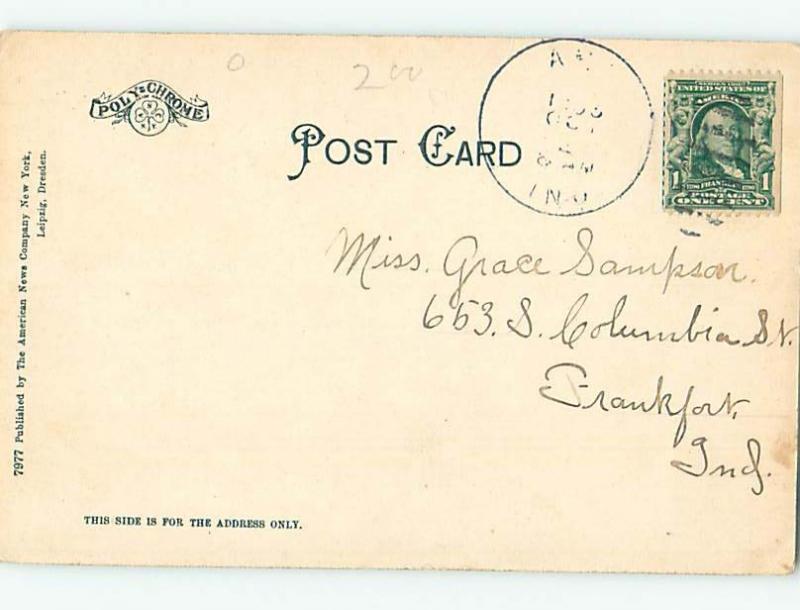 POLY-CHROME
2 00
POST CARD
SERIES 1902
UNITED STATES OF
AMERICA
1 1
POSTAGE
ONE CENT
Miss. Grace Sampson.
653. S. Columbia St.
Frankfort,
Ind.
7977 Published by The American News Company New York,
Leipzig, Dresden.
THIS SIDE IS FOR THE ADDRESS ONLY.